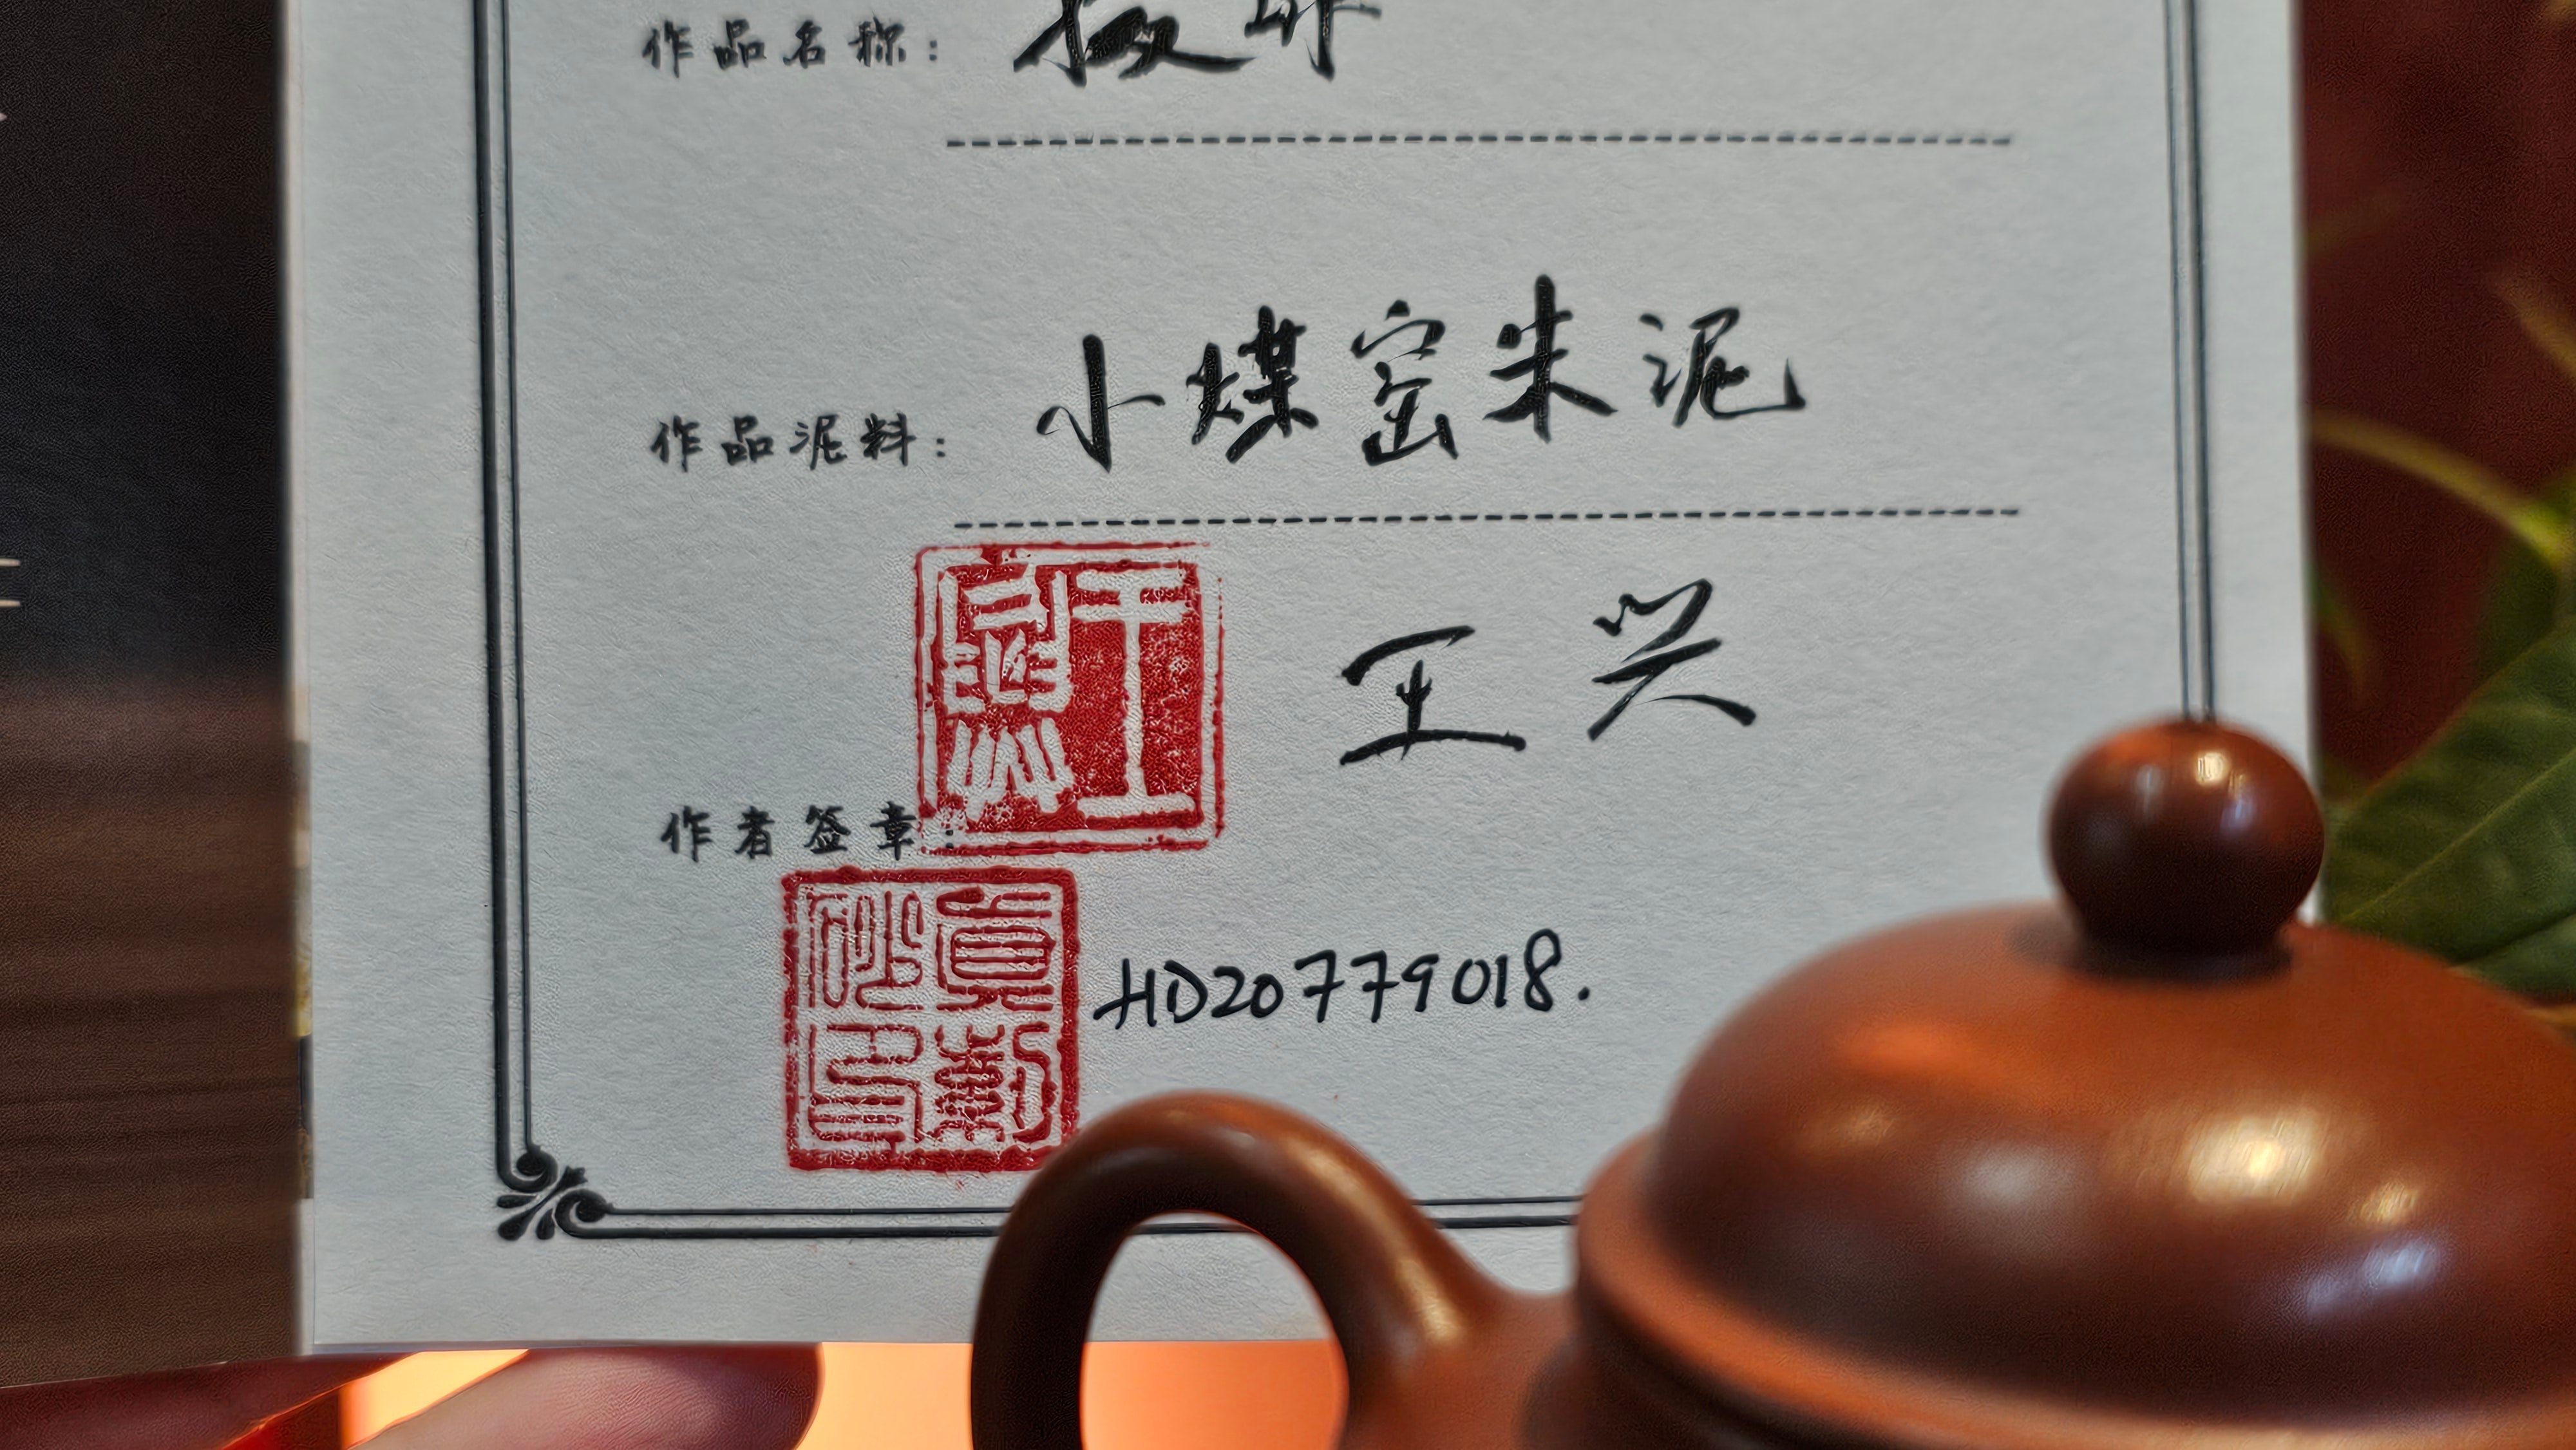 作品名称：
作品泥料：小煤窑朱泥
王兴
作者签章：
HD20779018.